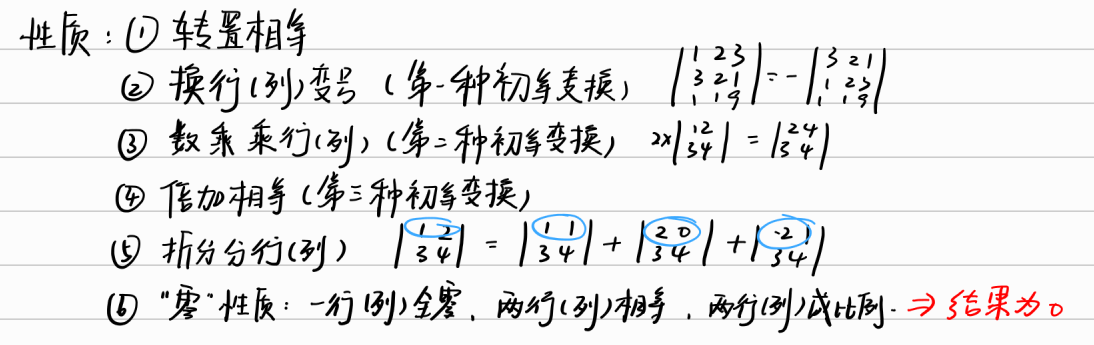 性质：① 转置相等
② 换行(列)变号 (第一种初等变换) |1 2 3 3 2 1 1 1 9| = - |3 2 1 1 2 3 1 1 9|
③ 数乘乘行(列) (第二种初等变换) 2x|1 2 3 4| = |2 4 3 4|
④ 倍加相等 (第三种初等变换)
⑤ 拆分分行(列) |1 2 3 4| = |1 1 3 4| + |2 0 3 4| + |-2 1 3 4|
⑥ "零"性质：一行(列)全零、两行(列)相等、两行(列)成比例. ⇒ 结果为0